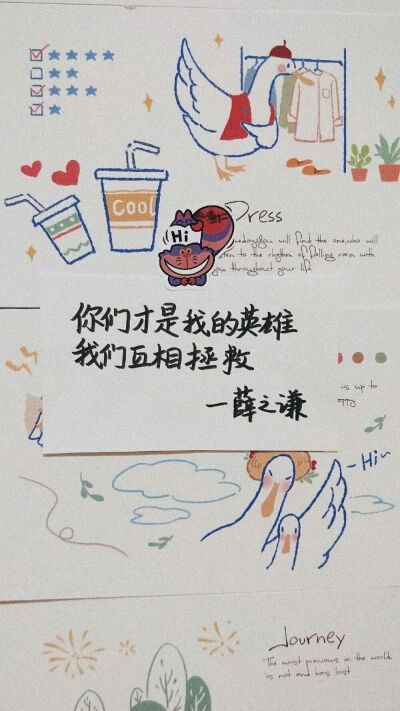 Cool
Dress
Hi
you will find the one.who will
to the rhythm of falling rain with
you throughout your life
你们才是我的英雄
我们互相拯救
—薛之谦
is up to
-Hi~
Journey
The most precious in the world
is not and has lost